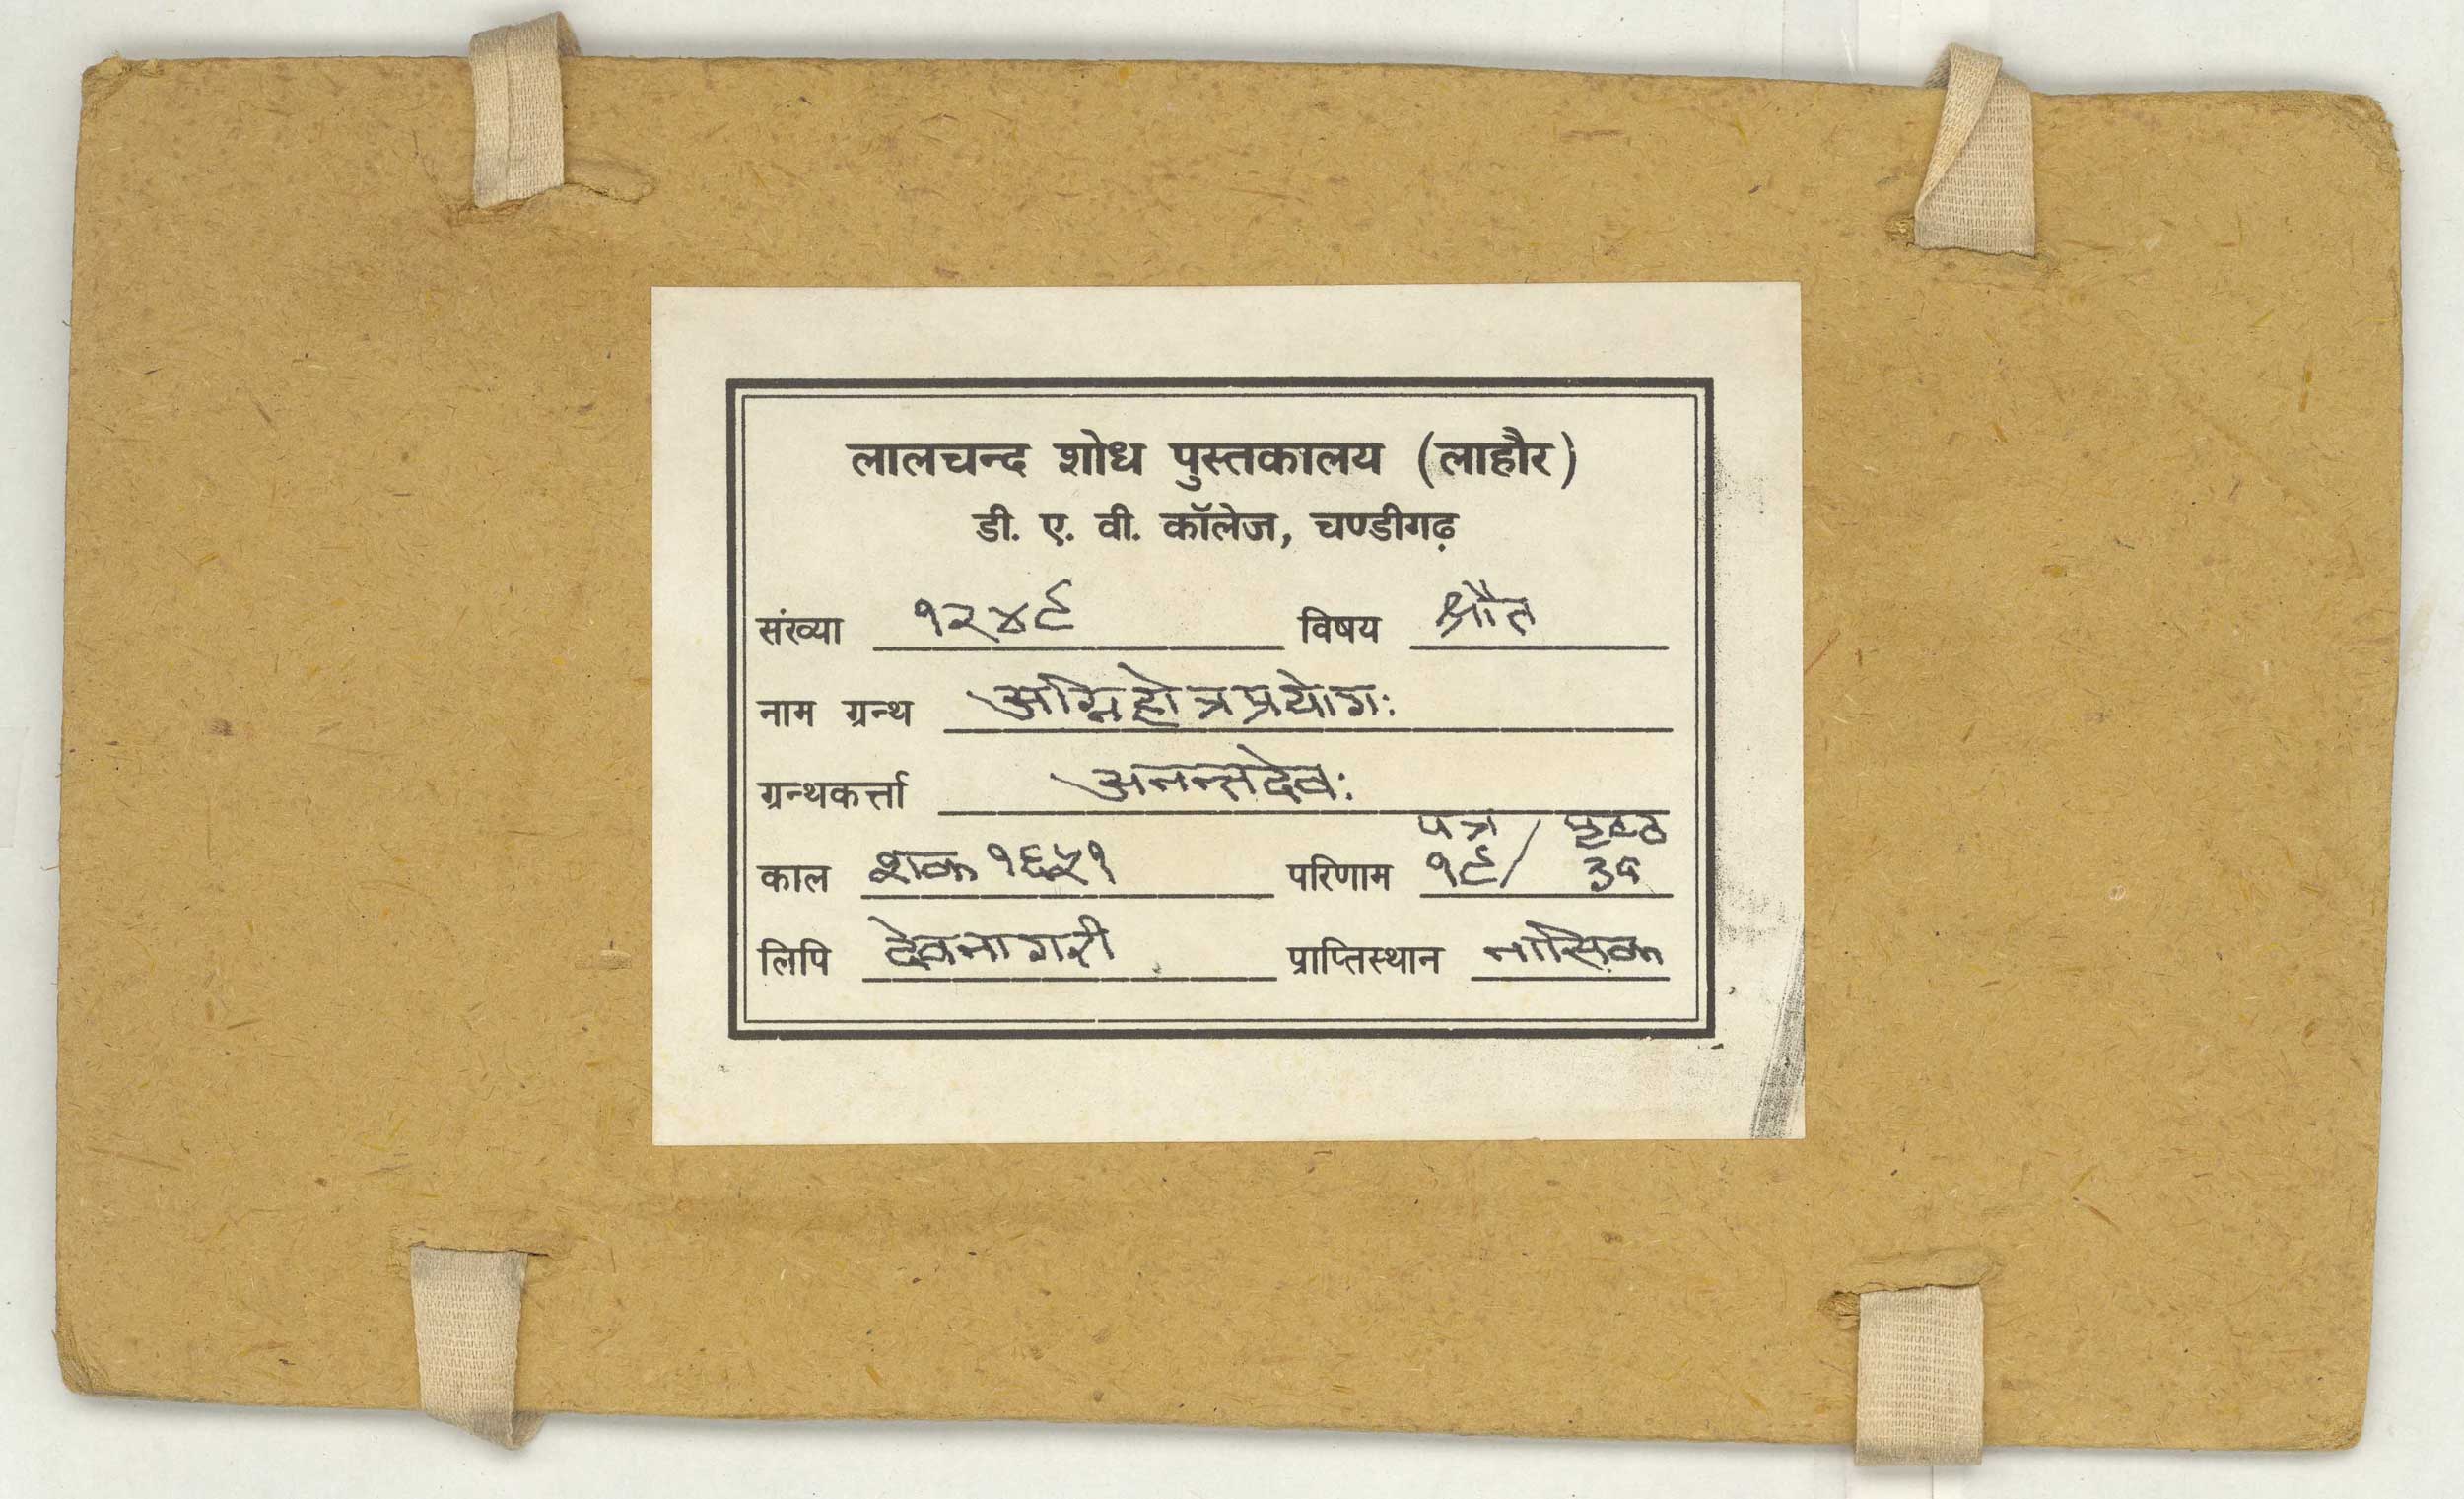 लालचन्द शोध पुस्तकालय (लाहौर)
डी. ए. वी. कॉलेज, चण्डीगढ़
संख्या १२४९ विषय श्रौत
नाम ग्रन्थ अग्निहोत्रप्रयोगः
ग्रन्थकर्त्ता अनन्तदेवः
पत्र / पृष्ठ
काल शक १६५१ परिणाम १९/
लिपि देवनागरी प्राप्तिस्थान नासिक